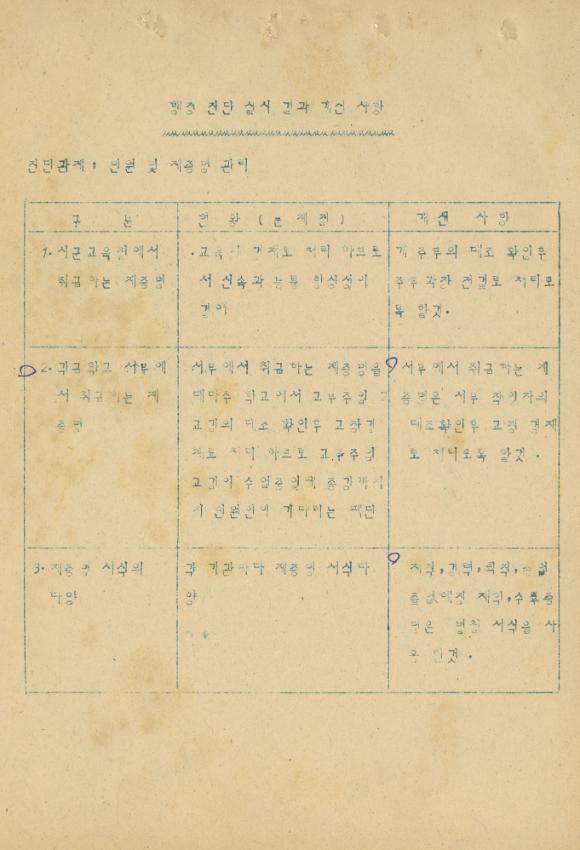 행정 진단 실시 결과 개선 사항
진단과제 : 민원 및 제증명 관리
구 분
현 황 ( 문제점 )
개선 사항
1. 시군교육청에서
취급하는 제증명
처리 하므로
서 신속과 능률
없이
계 주무의 대조 확인후
주무과장 전결로 처리토
록 할것.
2. 각급학교 서무에
서 취급하는 제
증명
서무에서 취급하는 제증명을
대다수 학교에서 교무주임
교감의 대조 확인후 교장결
재로 처리 하므로 교무주임
교감이 수업중일때
민원인이 기다리는 폐단
서무에서 취급하는 제
증명은 서무 책임자의
대조확인후 교장 결재
로 처리토록 할것.
3. 제증명 서식의
다양
각 기관마다 제증명 서식 다
양
재직, 경력, 퇴직,
재학, 수료증
명은 별첨 서식을 사
용 할것.